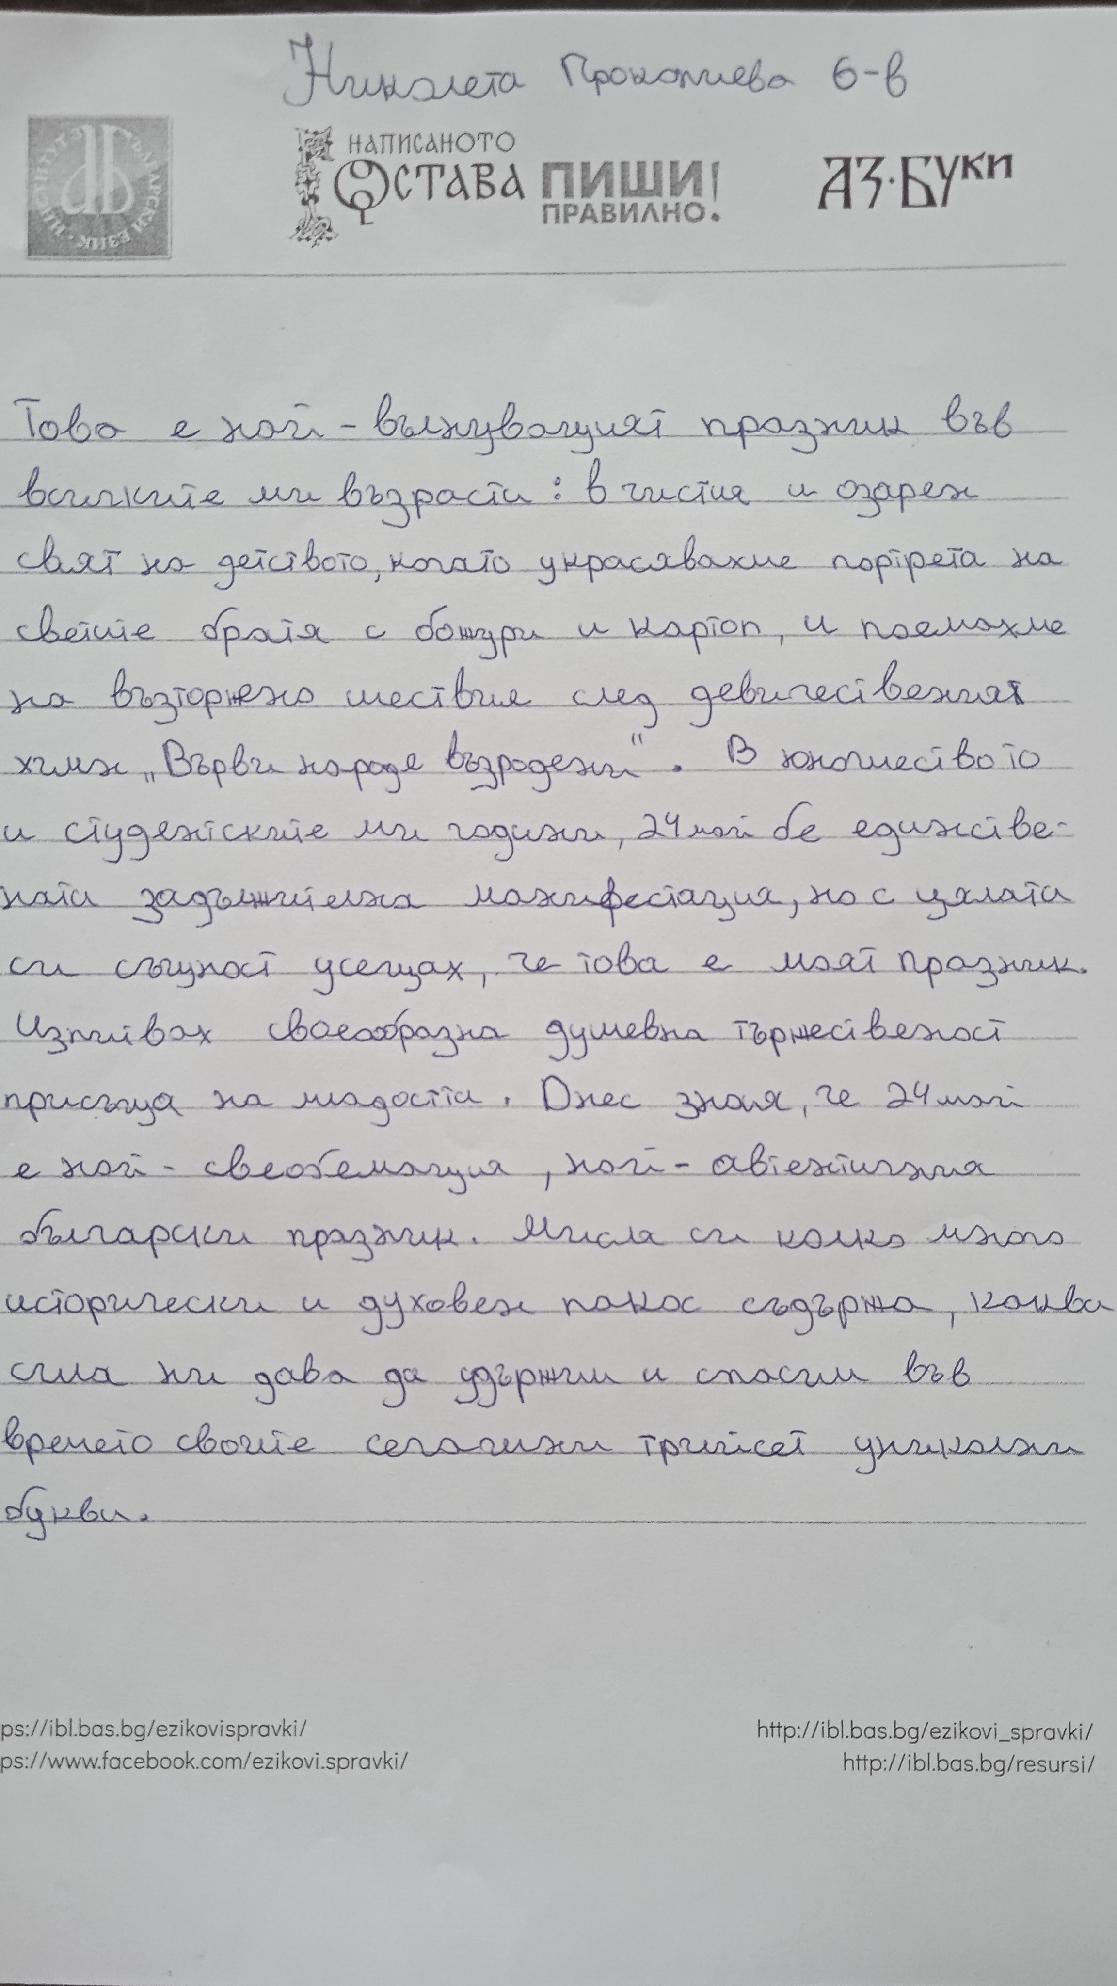 Николета Прокопиева 6-в
БЪЛГАРСКИ ЕЗИК · ИНСТИТУТ ЗА
НАПИСАНОТО
ОСТАВА ПИШИ!
ПРАВИЛНО.
АЗ·БУКИ
Това е най-вълнуващият празник във
всичките ми възрасти: в чистия и озарен
свят на детството, когато украсявахме портрета на
светите братя с божури и картоп, и поемахме
на възторжено шествие след девичественият
химн „Върви народе възродени". В юношеството
и студентските ми години, 24 май бе единстве-
ната задължителна манифестация, но с цялата
си същност усещах, че това е моят празник.
Изпивах своеобразна душевна тържественост
присъща на младостта. Днес зная, че 24 май
е най-свеобемащия, най-автентичния
български празник. Мисля си колко много
исторически и духовен пакос съдържа, каква
сила ни дава да удържим и спасим във
времето своите сегашни трийсет уникални
букви.
ps://ibl.bas.bg/ezikovispravki/
ps://www.facebook.com/ezikovi.spravki/
http://ibl.bas.bg/ezikovi_spravki/
http://ibl.bas.bg/resursi/